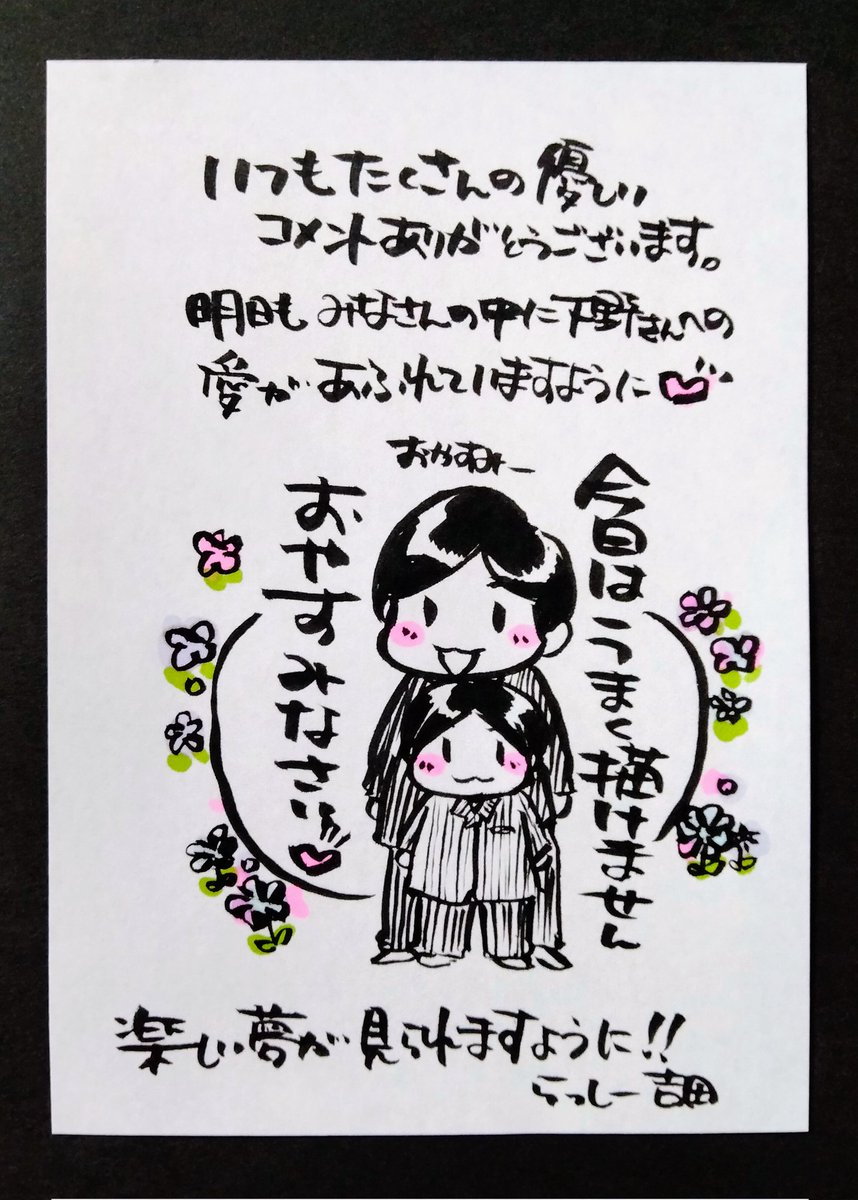 いつもたくさんの優しい
コメントありがとうございます。
明日もみなさんの中に下野さんへの
愛があふれていますように
おやすみー
今日はうまく描けません
おやすみなさいッ
楽しい夢が見られますように!!
らっしー吉田